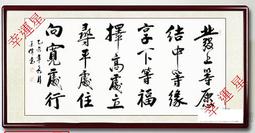 發上等願
結中等緣
享下等福
擇高處立
尋平處住
向寬處行
幸運星
幸運星